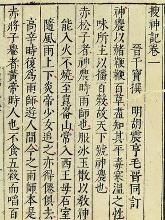 搜神記卷一
晉干寶撰 明胡震亨毛晉同訂
神農以赭鞭鞭百草盡知其平毒寒溫之性
味所主以播百穀故天下號神農也
赤松子者神農時雨師也服冰玉散以教神
能入火不燒至崑崙山常入西王母石室
隨風雨上下炎帝少女追之亦得僊俱去
高辛時復為雨師遊人間今之雨師本是
赤將子轝者黃帝時人也不食五穀而啗百